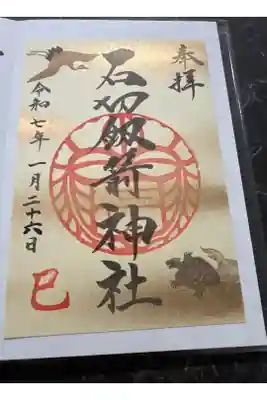 奉拝
石切劔箭神社
令和七年一月二十六日
巳